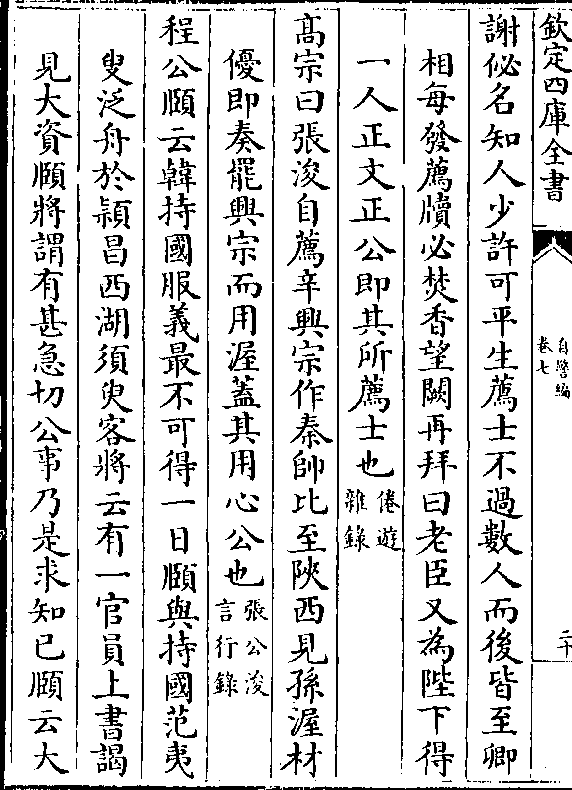 欽定四庫全書
自警編
卷七
二十
謝泌名知人少許可平生薦士不過數人而後皆至卿
相每發薦牘必焚香望闕再拜曰老臣又為陛下得
一人王文正公即其所薦士也倦遊雜錄
髙宗曰張浚自薦辛興宗作秦帥比至陜西見孫渥材
優即奏罷興宗而用渥蓋其用心公也張公浚言行錄
程公頤云韓持國服義最不可得一日頤與持國范夷
叟泛舟於潁昌西湖須臾客將云有一官員上書謁
見大資頤將謂有甚急切公事乃是求知已頤云大